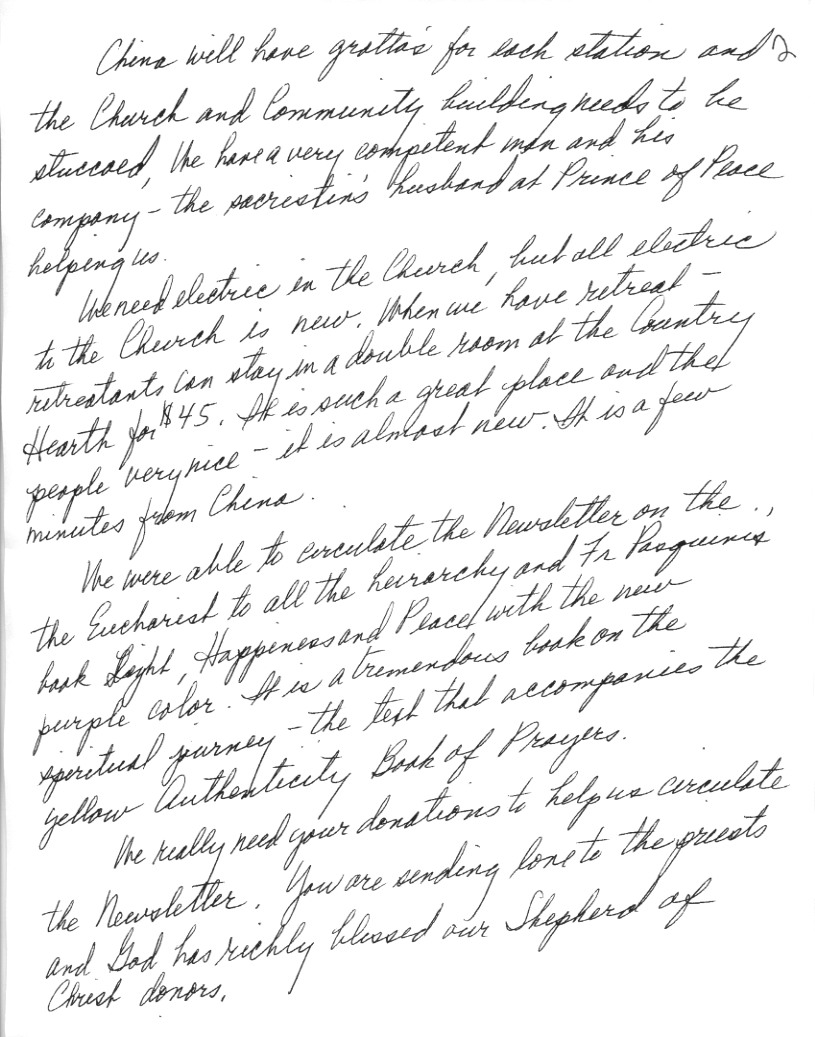 China will have grotto's for each station and 2
the Church and Community building needs to be
stuccoed, We have a very competent man and his
company – the sacrestin's husband at Prince of Peace
helping us.
We need electric in the Church, but all electric
to the Church is new. When we have retreat –
retreatants can stay in a double room at the Country
Hearth for $45. It is such a great place and the
people very nice – it is almost new. It is a few
minutes from China.
We were able to circulate the Newsletter on the .,
the Eucharist to all the heirarchy and Fr Pasquinis
book Light, Happiness and Peace with the new
purple color. It is a tremendous book on the
spiritual journey – the text that accompanies the
yellow Authenticity Book of Prayers.
We really need your donations to help us circulate
the Newsletter. You are sending love to the priests
and God has richly blessed our Shepherd of
Christ donors.